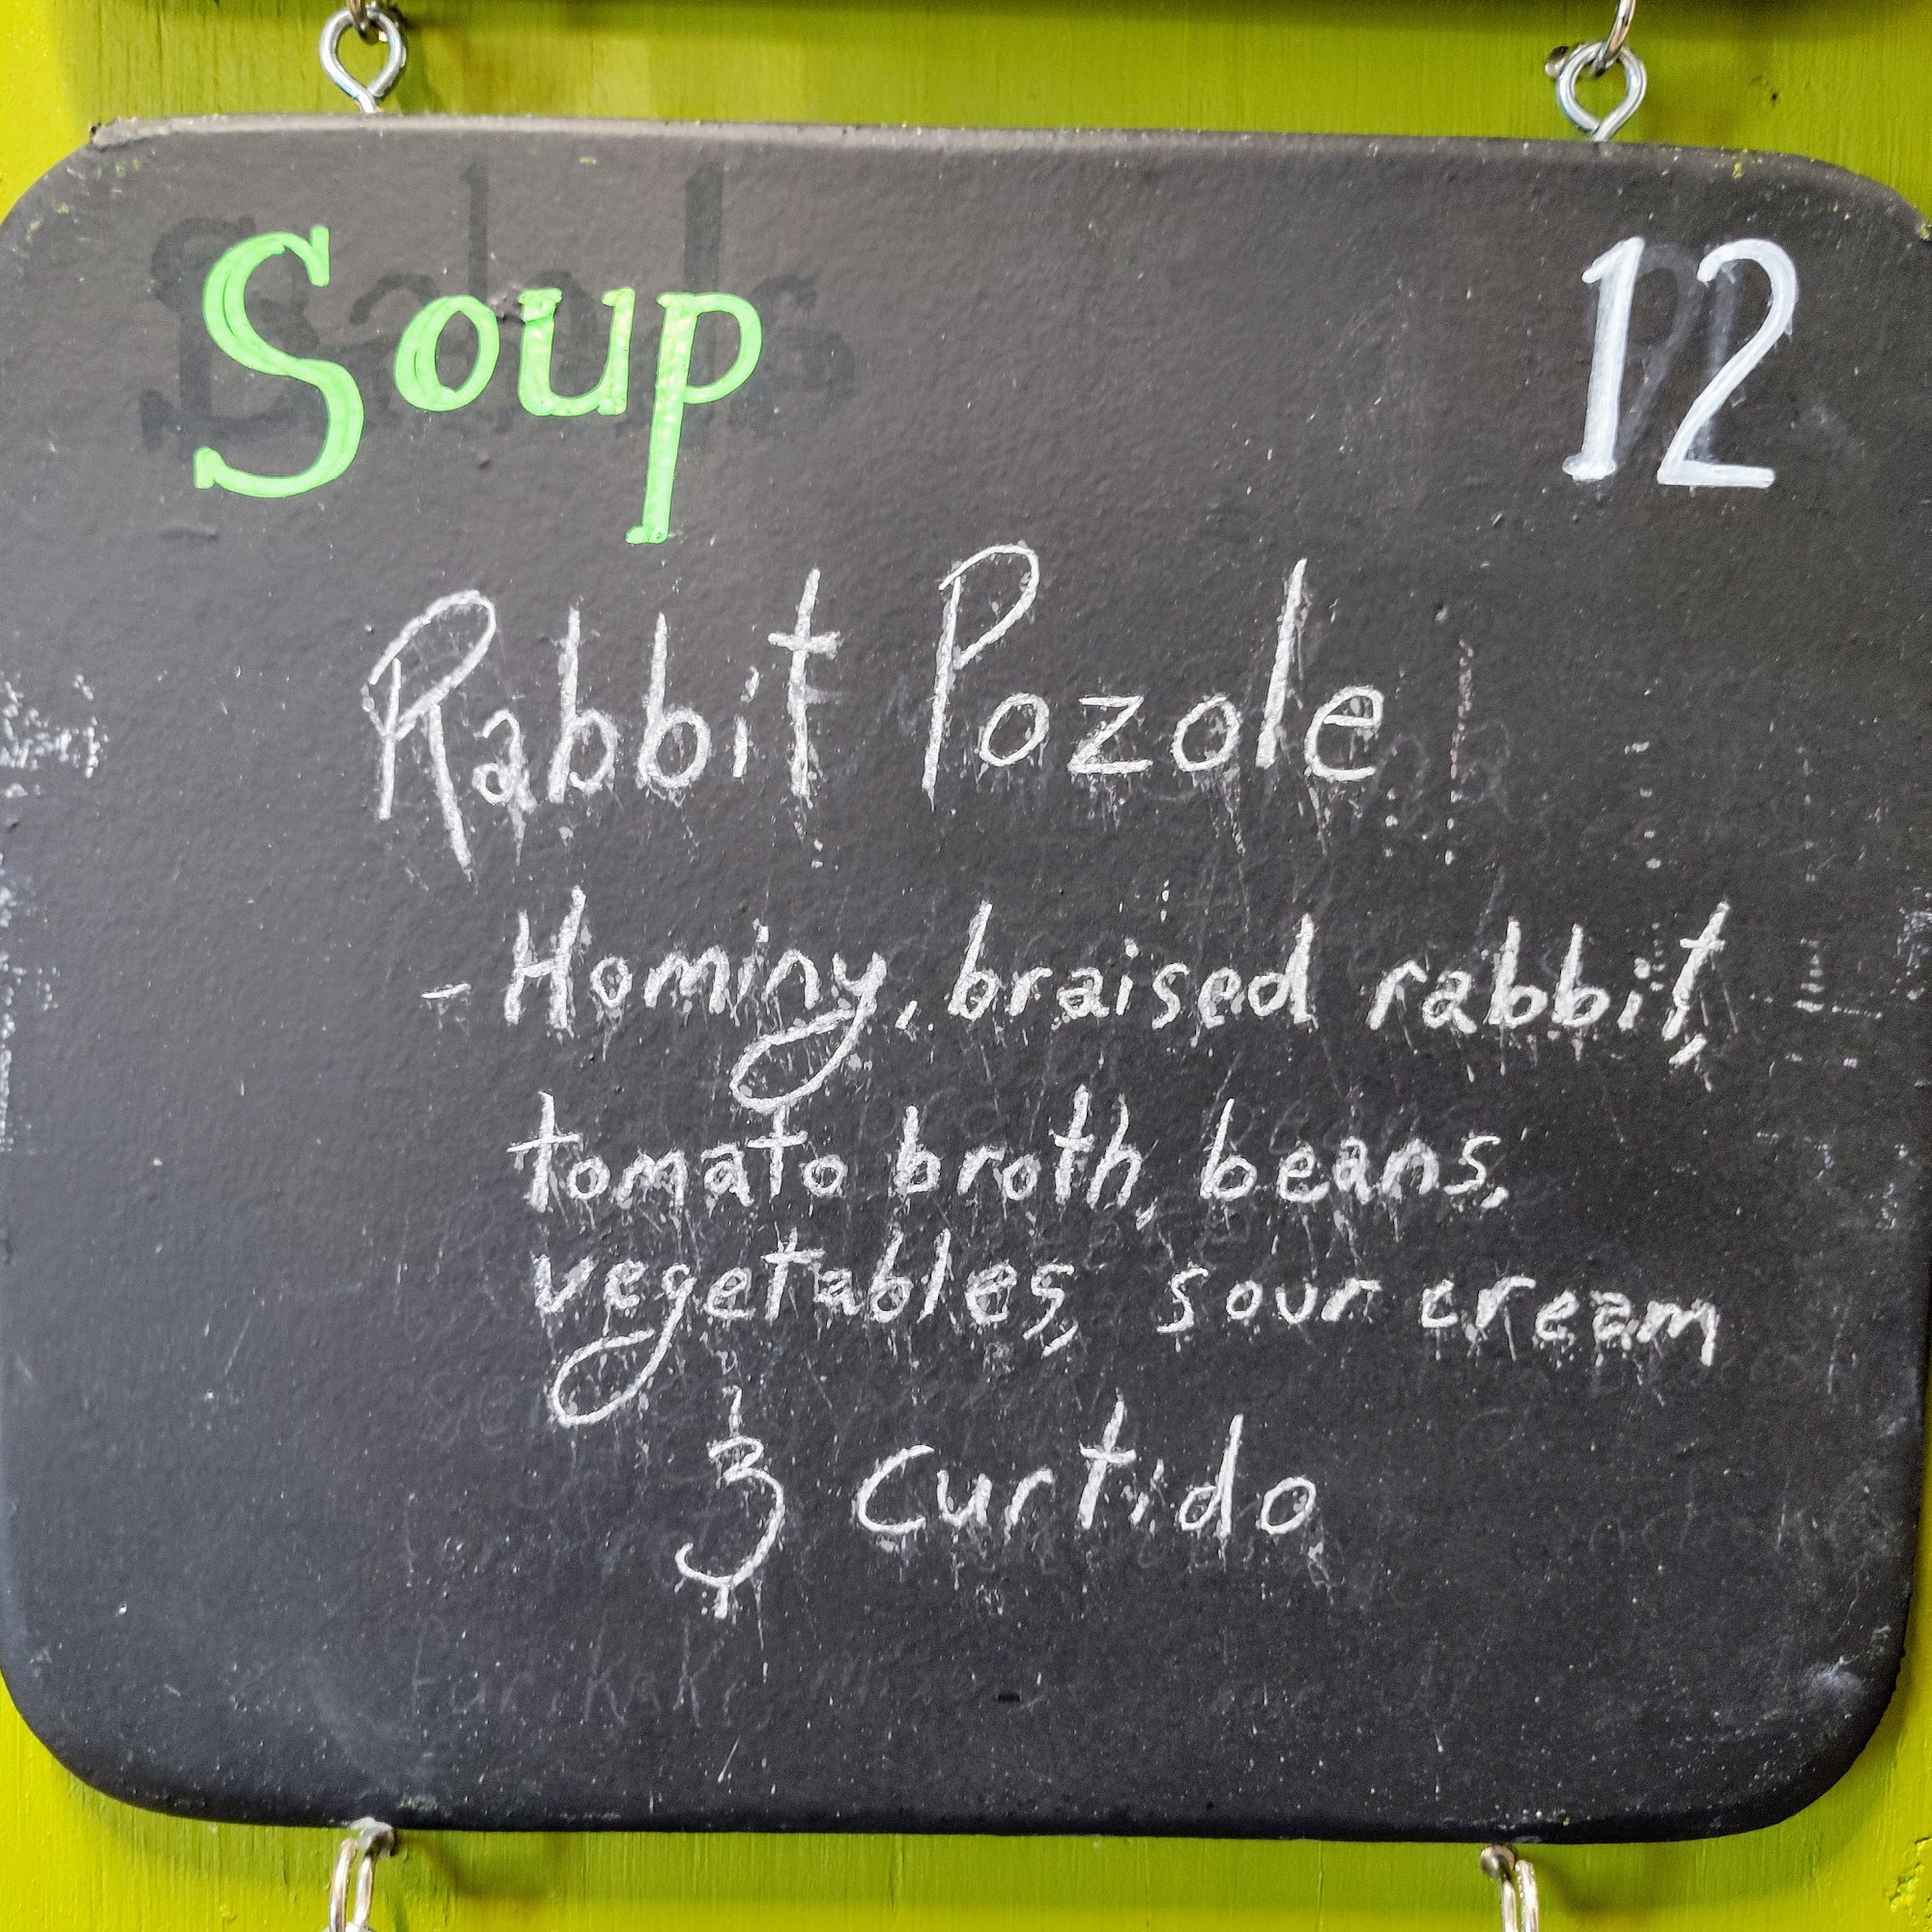 Soup 12
Rabbit Pozole
- Hominy, braised rabbit,
tomato broth, beans,
vegetables, sour cream
& Curtido